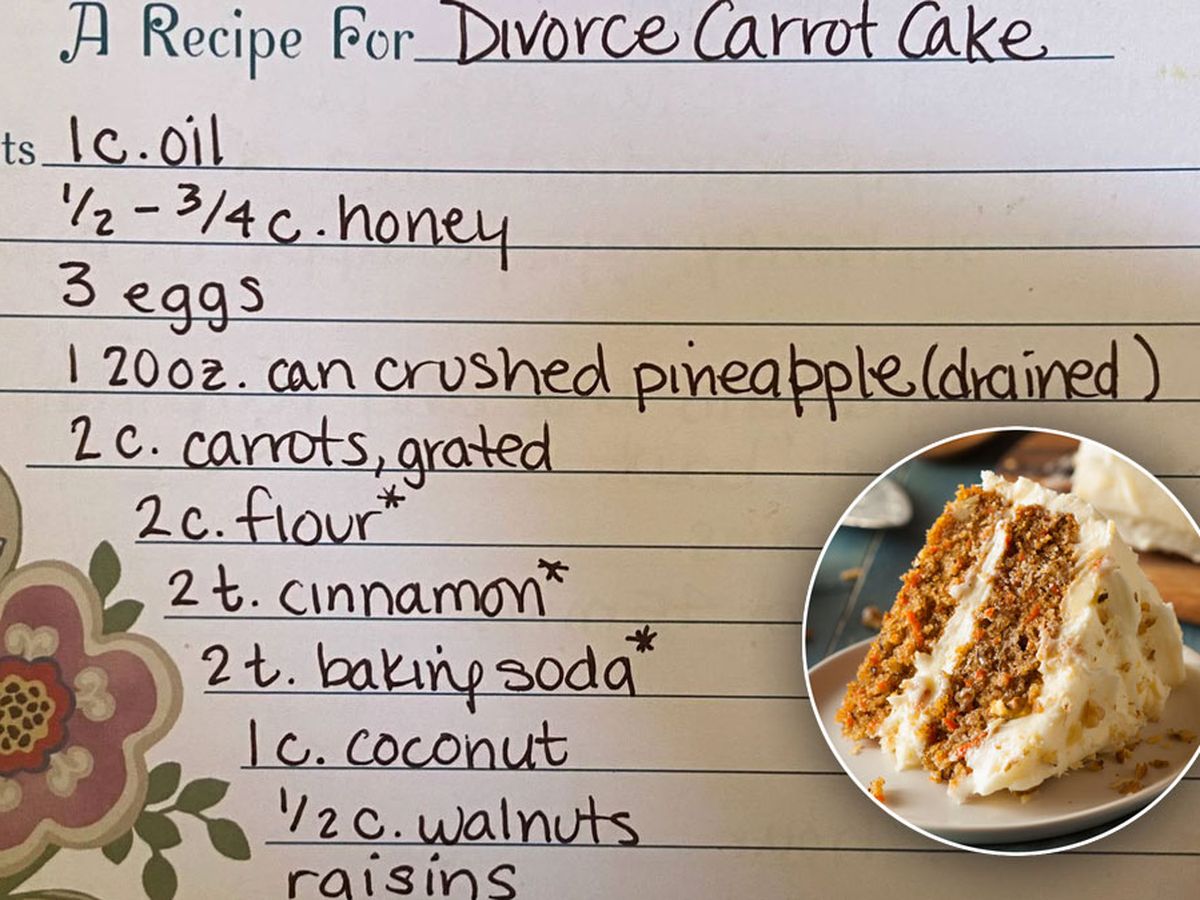 A Recipe For Divorce Carrot Cake
ts 1c. oil
1/2 - 3/4 c. honey
3 eggs
1 20oz. can crushed pineapple (drained)
2 c. carrots, grated
2c. flour*
2 t. cinnamon*
2 t. baking soda*
1c. coconut
1/2 c. walnuts
raisins